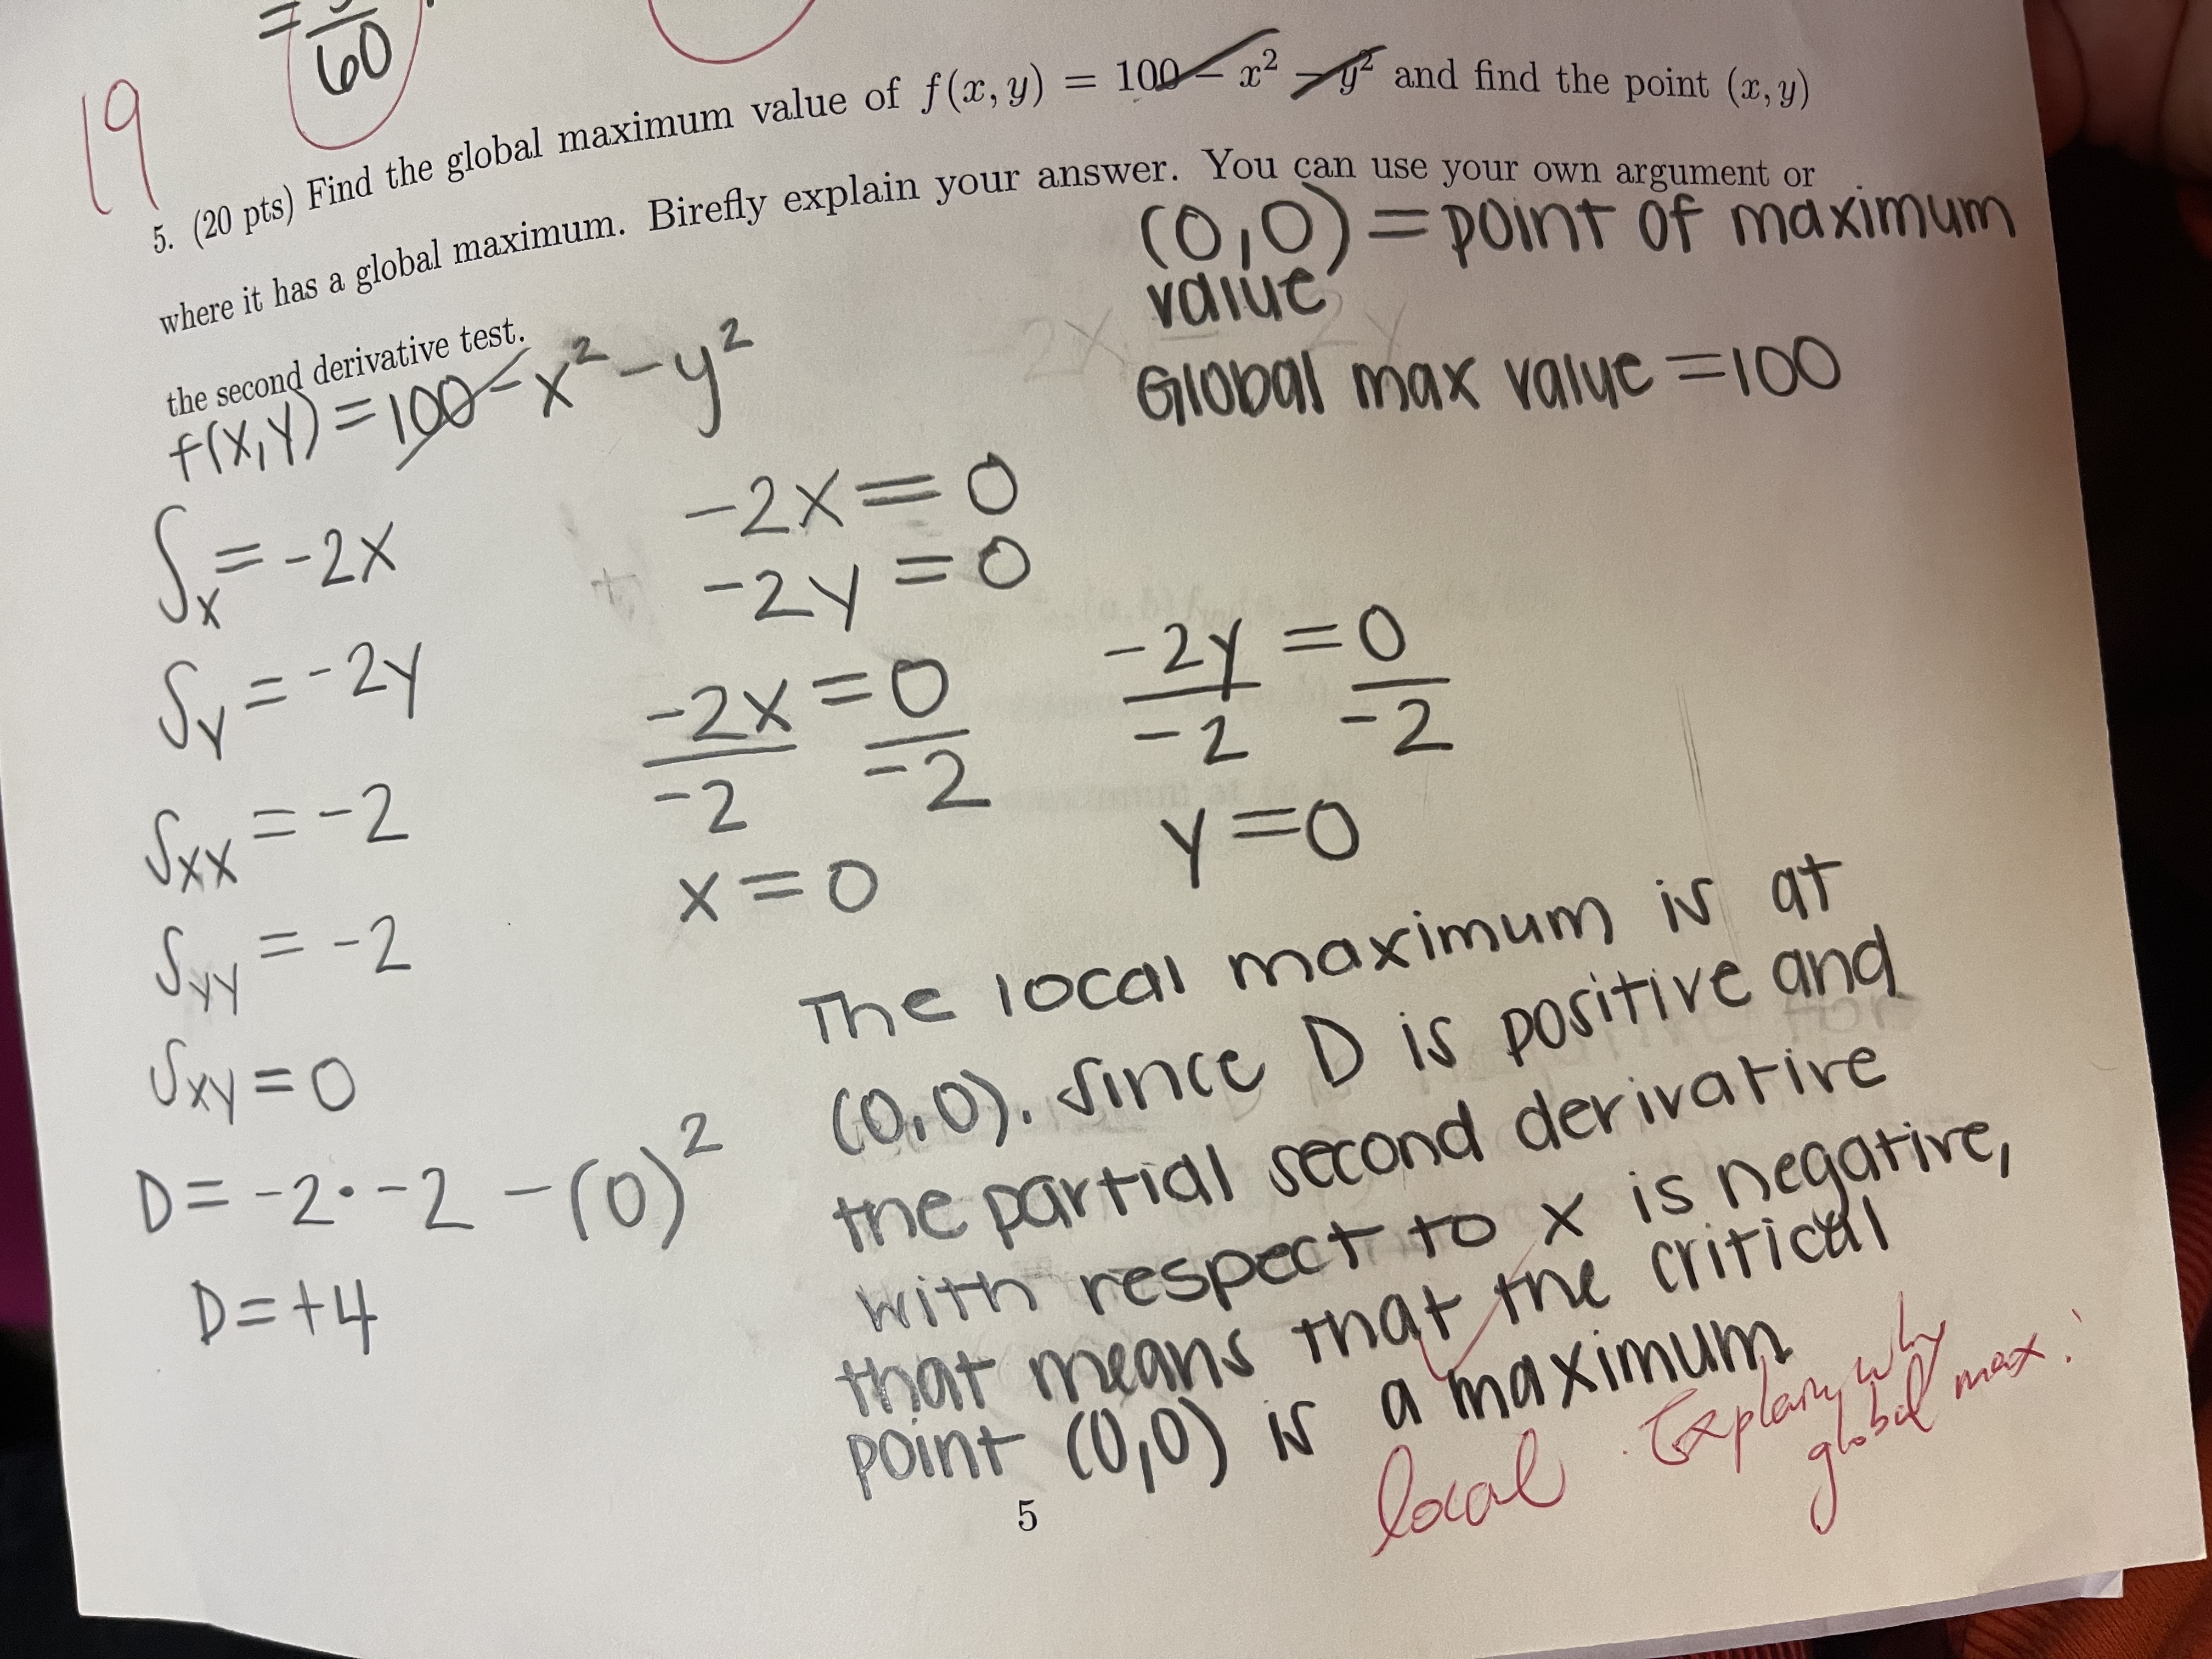 = 
60
19
5. (20 pts) Find the global maximum value of f(x, y) = 100 − x² − y² and find the point (x, y)
where it has a global maximum. Birefly explain your answer. You can use your own argument or
the second derivative test.
(0,0) = point of maximum
value
Global max value = 100
f(x,y) = 100 - x² - y²
fx = -2x
fy = -2y
fxx = -2
fyy = -2
fxy = 0
D = -2 · -2 - (0)²
D = +4
-2x = 0
-2y = 0
-2x = 0
-2 -2
x = 0
-2y = 0
-2 -2
y = 0
The local maximum is at
(0,0). Since D is positive and
the partial second derivative
with respect to x is negative,
that means that the critical
point (0,0) is a maximum
local
Explain why
global max.
5